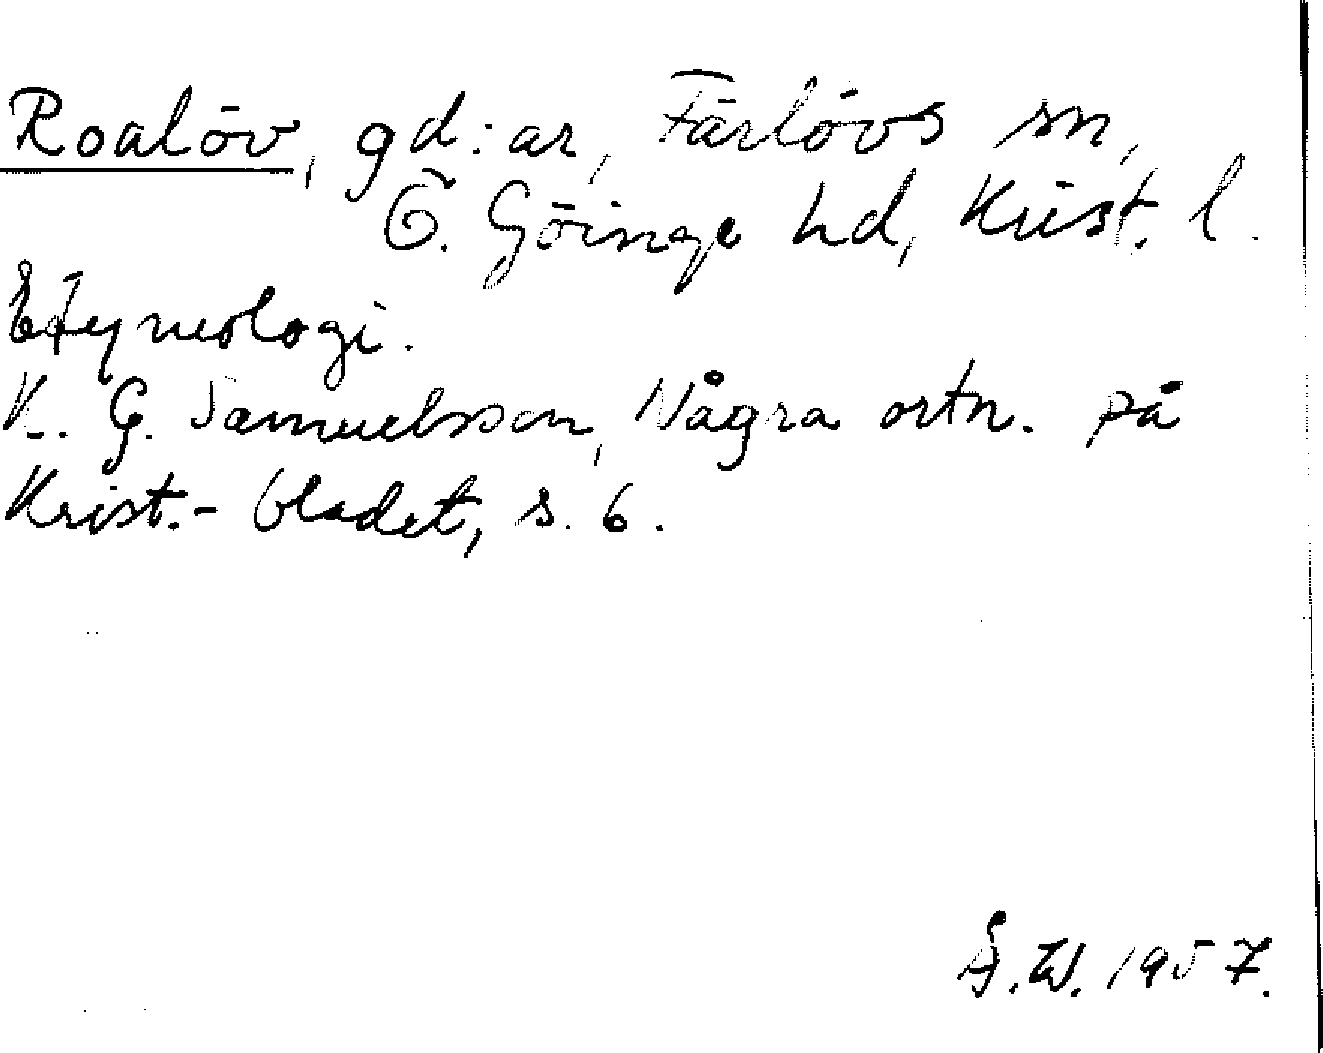 Roalöv, gd:ar, Färlövs sn,
Ö. Göinge hd, Krist. l.
Etymologi.
K. G. Samuelsson, Några ortn. på
Krist.-bladet, s. 6.
Å.W. 1957.